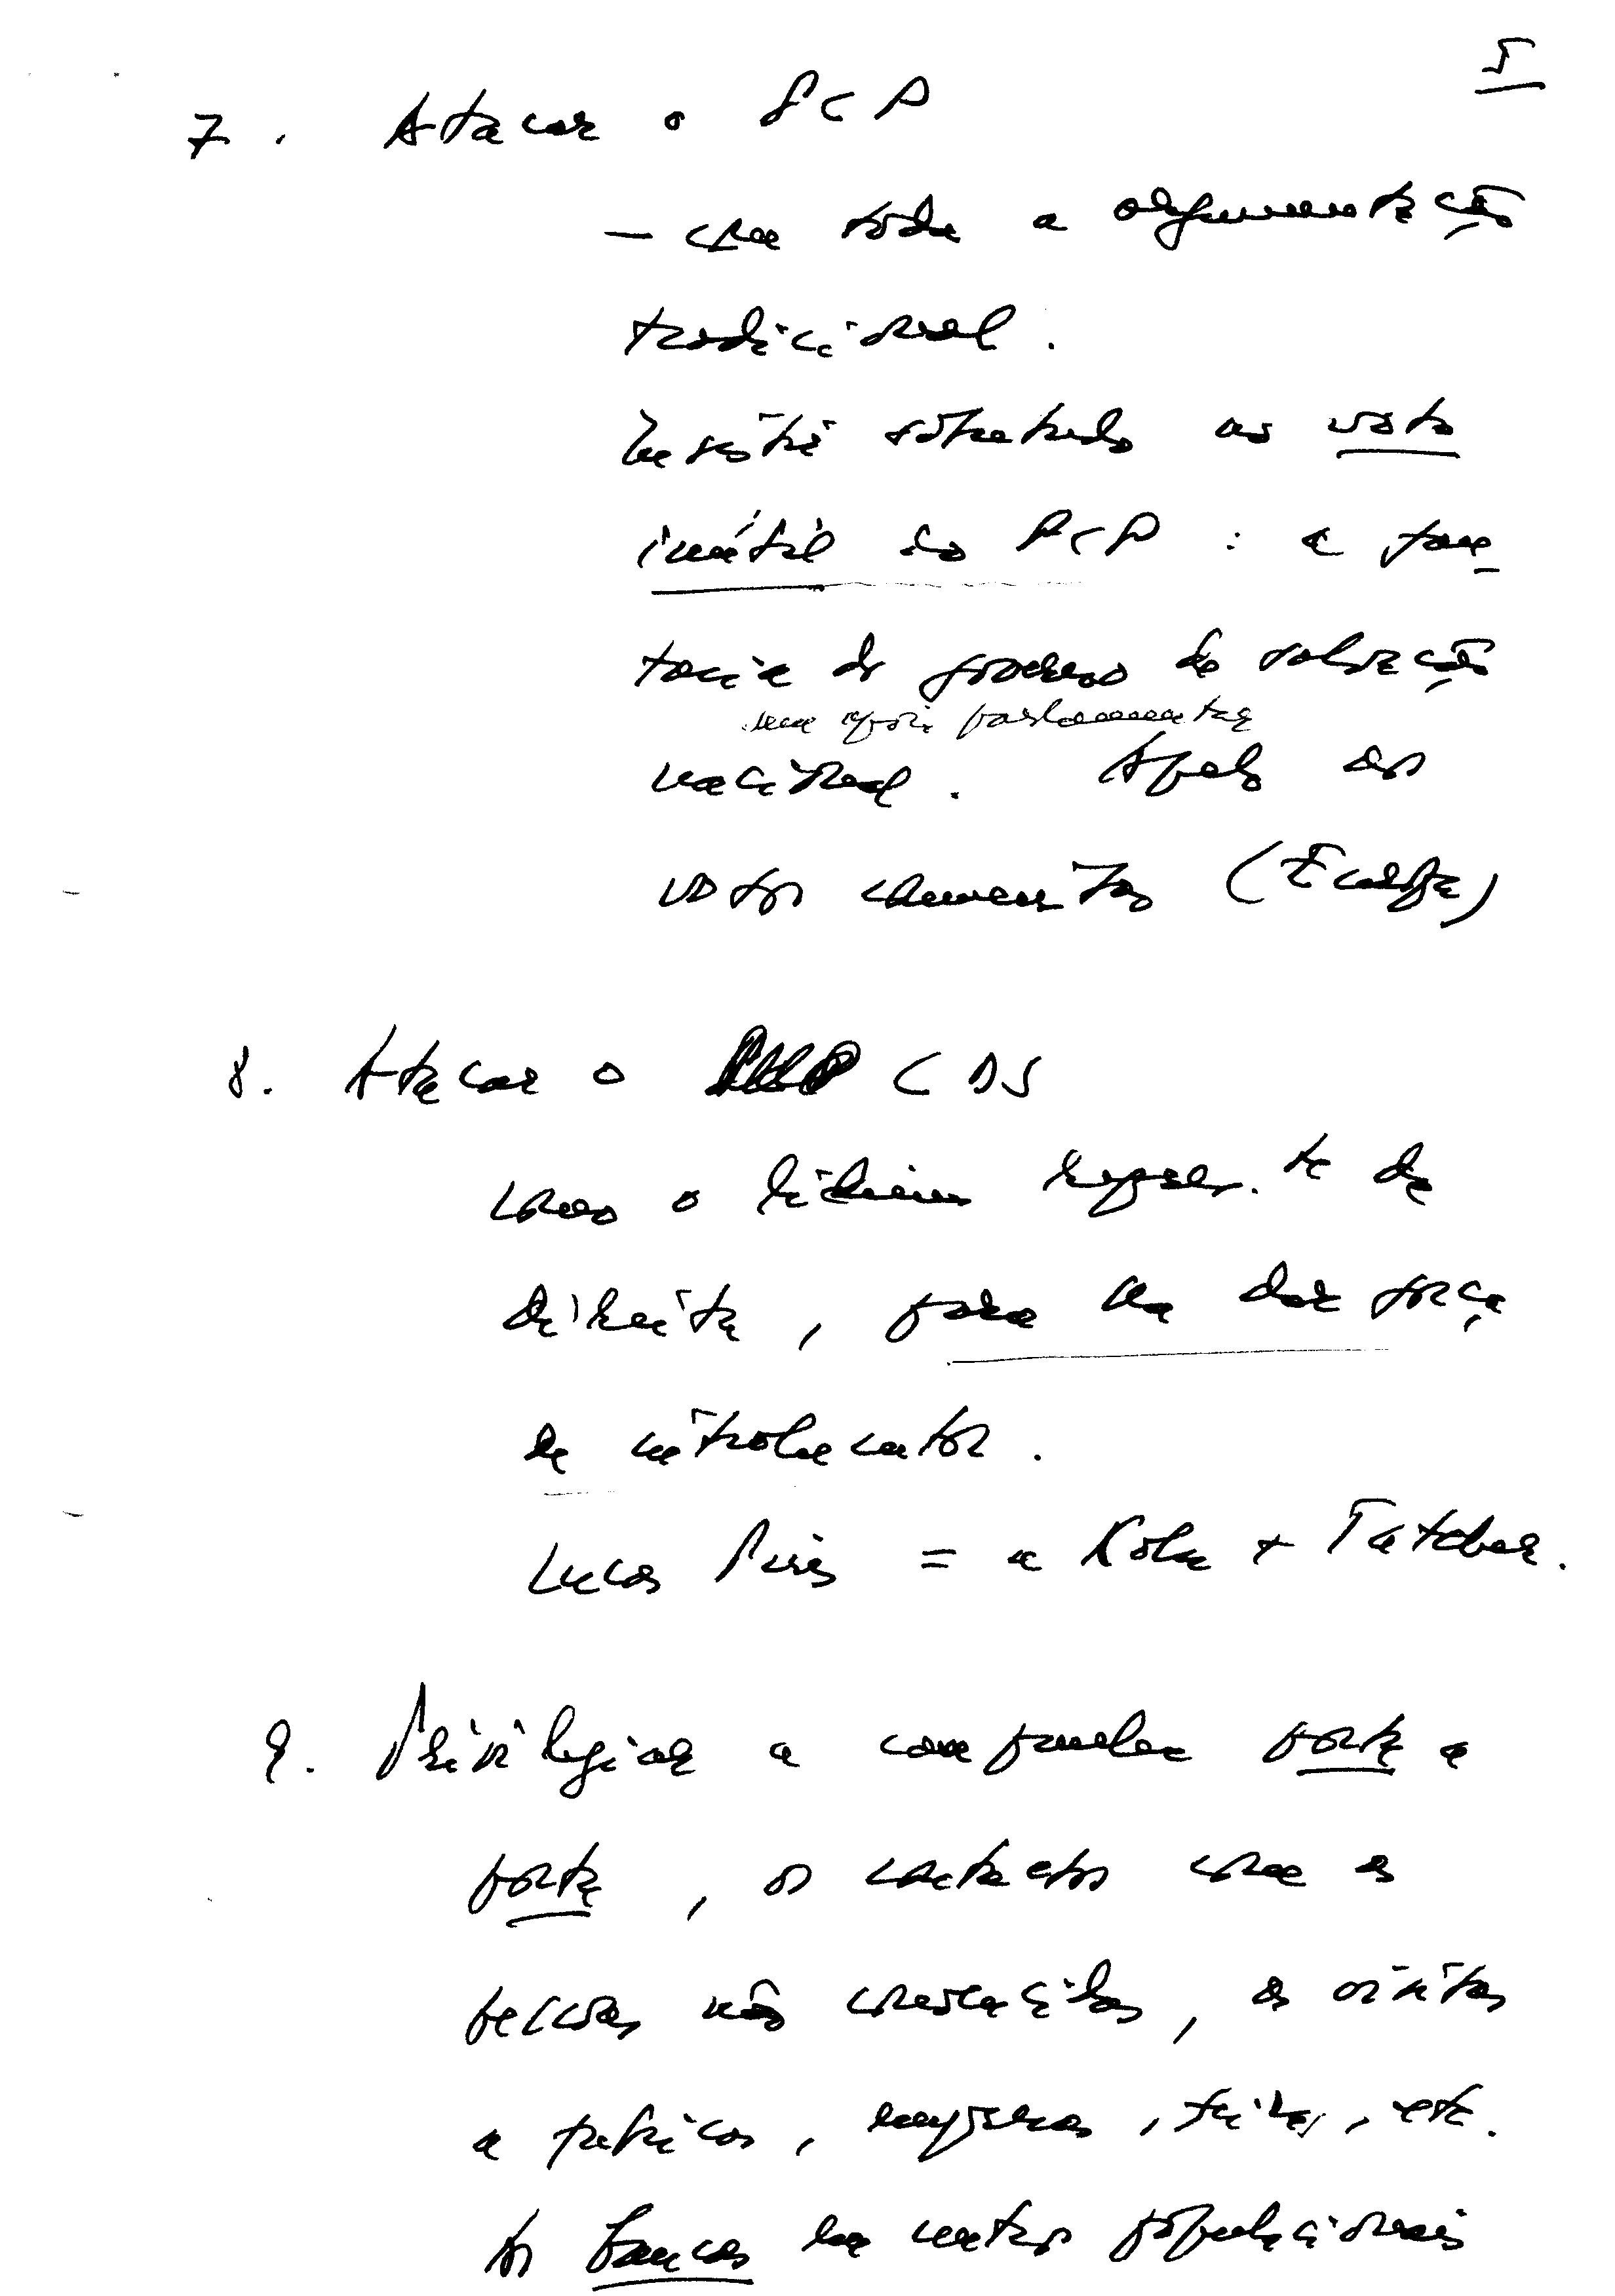 5
7. Atacar o PCP
— com toda a argumentação
tradicional.
Insistir sobretudo no voto
inútil do PCP : a fan-
tasia do governo de salvação
sem apoio parlamentar
nacional. Apelo aos
votos comunistas
8. Atacar o CDS
como o lídimo repres.te da
direita, para lhe dar força
Lucas Pires = a Kohl + Tatcher.
9. Privilegiar a campanha porta a
porta, os contactos com as
pessoas não convencidas, as visitas
a fábricas, empresas, feiras, etc.
As bancas nos centros populacionais